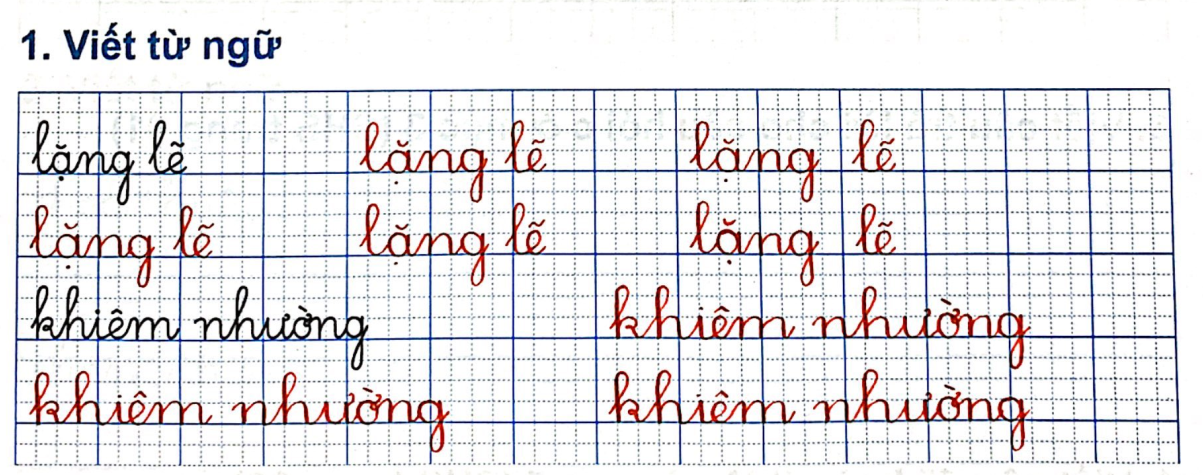 1. Viết từ ngữ
lặng lẽ lặng lẽ lặng lẽ
lặng lẽ lặng lẽ lặng lẽ
khiêm nhường khiêm nhường
khiêm nhường khiêm nhường